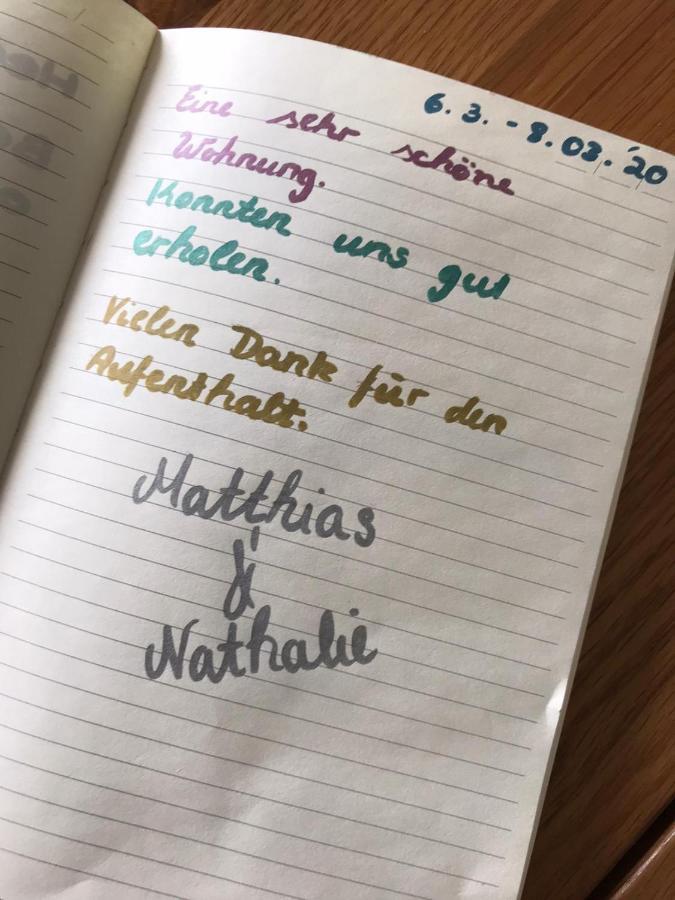 6.3. - 8.03.'20
Eine sehr schöne
Wohnung.
Konnten uns gut
erholen.
Vielen Dank für den
Aufenthalt.
Matthias
&
Nathalie